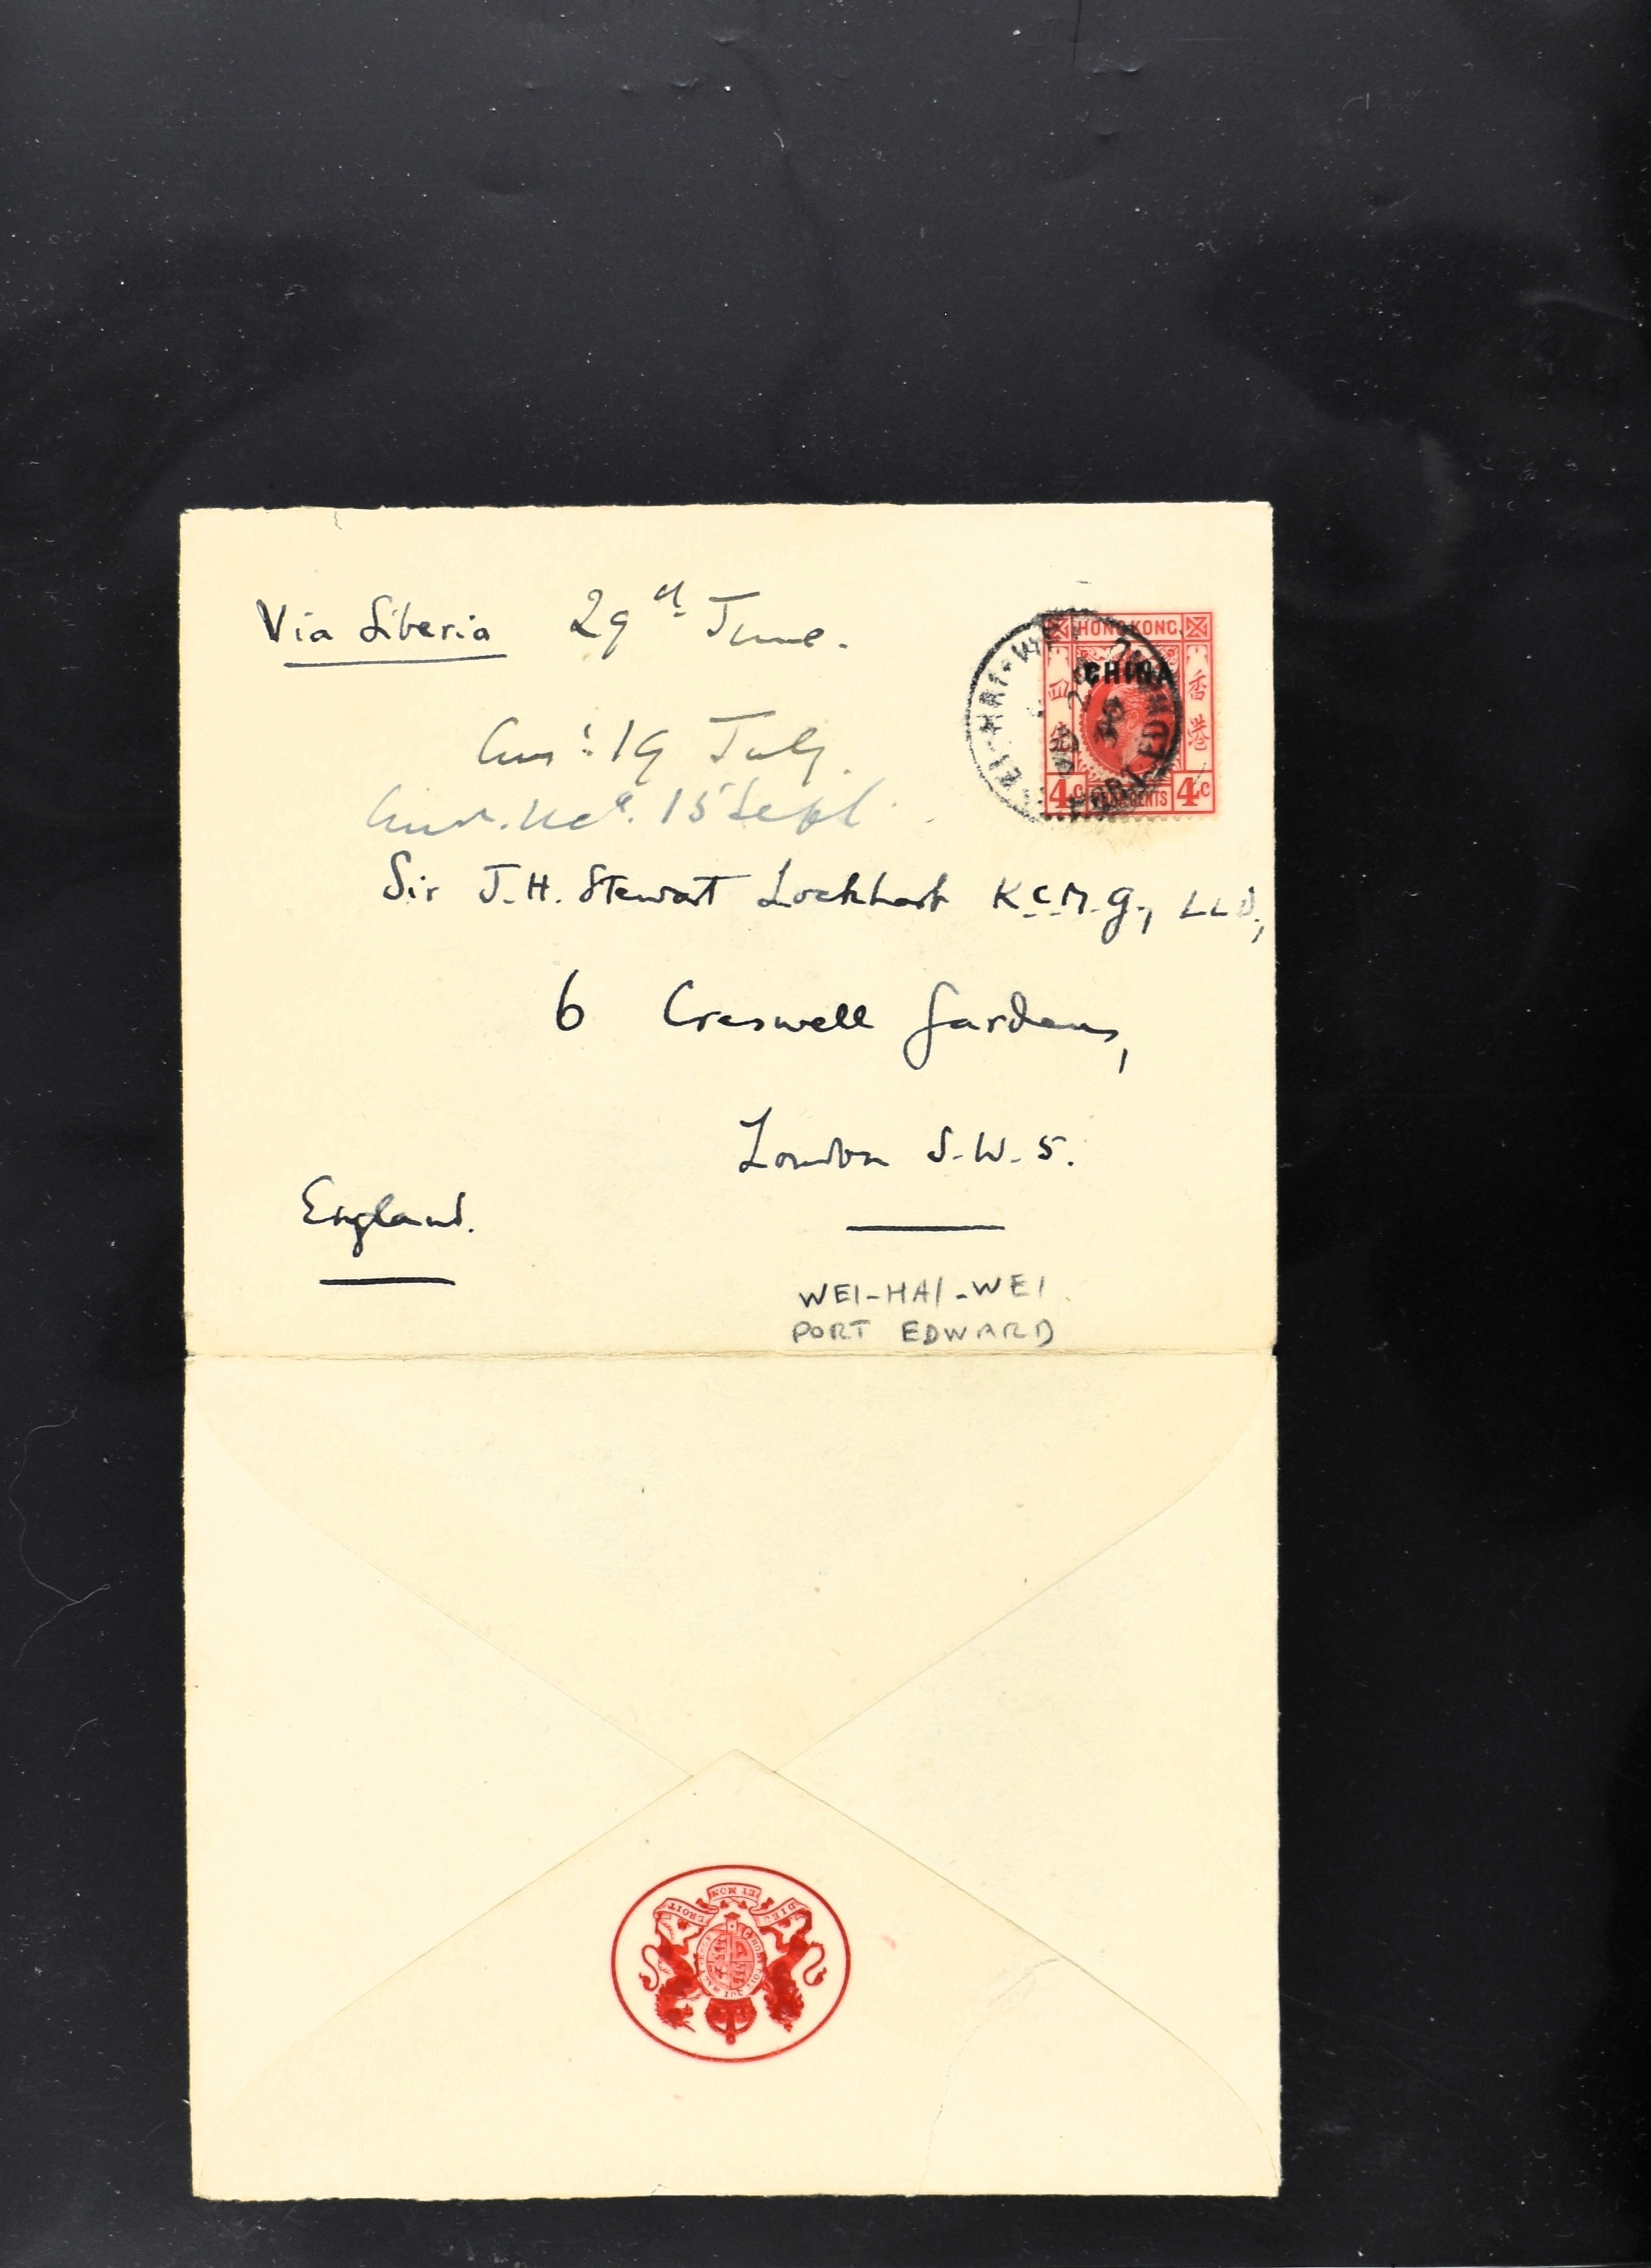 Via Siberia 29th June.
HONG KONG.
CHINA
香港
四
4c CENTS 4c
WEI-HAI-WEI
PORT EDWARD
30
19 July.
15 Sept.
Sir J.H. Stewart Lockhart K.C.M.G., LLD,
6 Creswell Gardens,
London S.W.5.
England.
WEI-HAI-WEI.
PORT EDWARD
DIEU ET MON DROIT